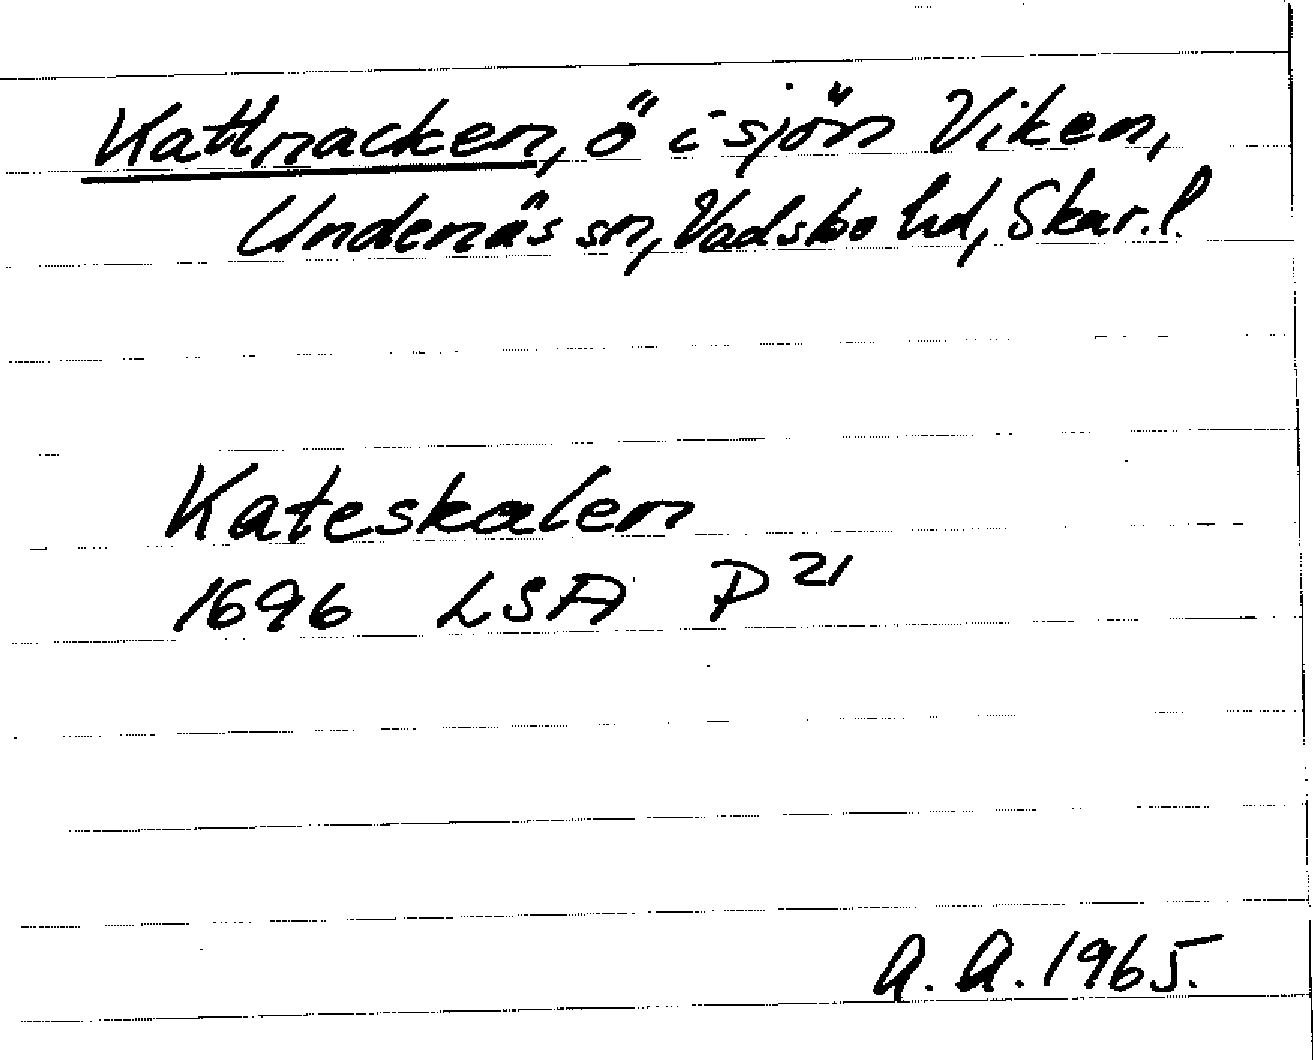 Kattnacken, ö i sjön Viken,
Undenäs sn, Vadsbo hd, Skar. l.
Kateskalen
1696 LSA P 21
A. A. 1965.